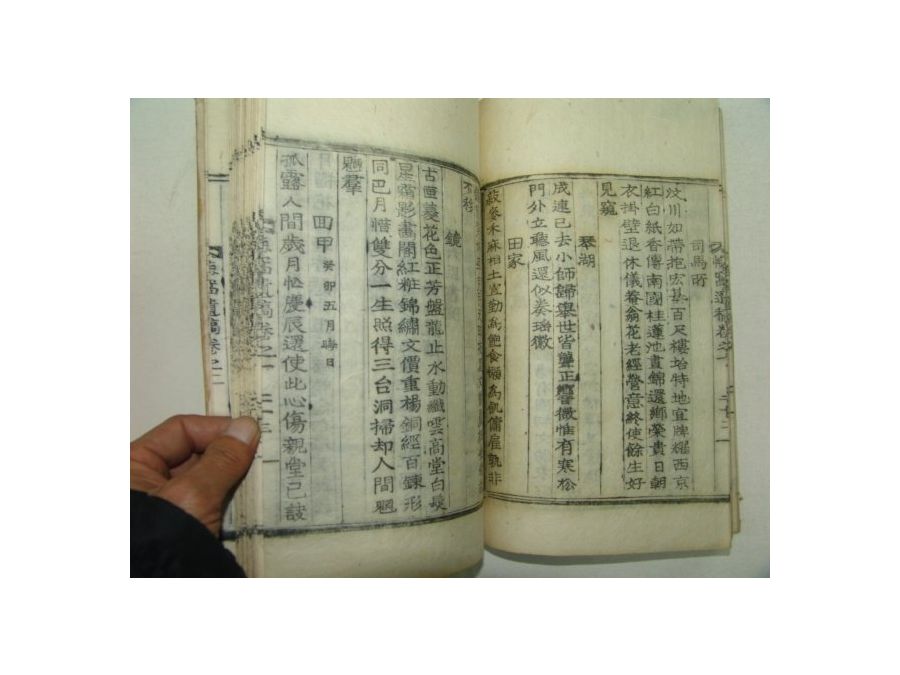 司馬所
汶川如帶抱宏基百尺樓㙜特地宜牌耀西京
紅白紙香傳南國桂蓮池晝錦還鄉榮貴日朝
衣掛壁退休儀養翁花老經營意終使餘生好
見窺
琴湖
成連已去小師歸舉世皆聾正響微惟有寒松
門外立聽風還似奏瑤徽
田家
菽麥木麻相土宜勤爲飽食懶爲飢傭雇孰非
鏡
古匣菱花色正芳盤龍止水動纖雲高堂白髮
星霜影畫閣紅粧錦繡文價重楊銅經百鍊形
同巴月惜雙分一生照得三台洞掃却人間魍
魎羣
回甲 癸卯五月晦日
孤露人間歲月忙慶辰還使此心傷親堂已
遺稿卷之二